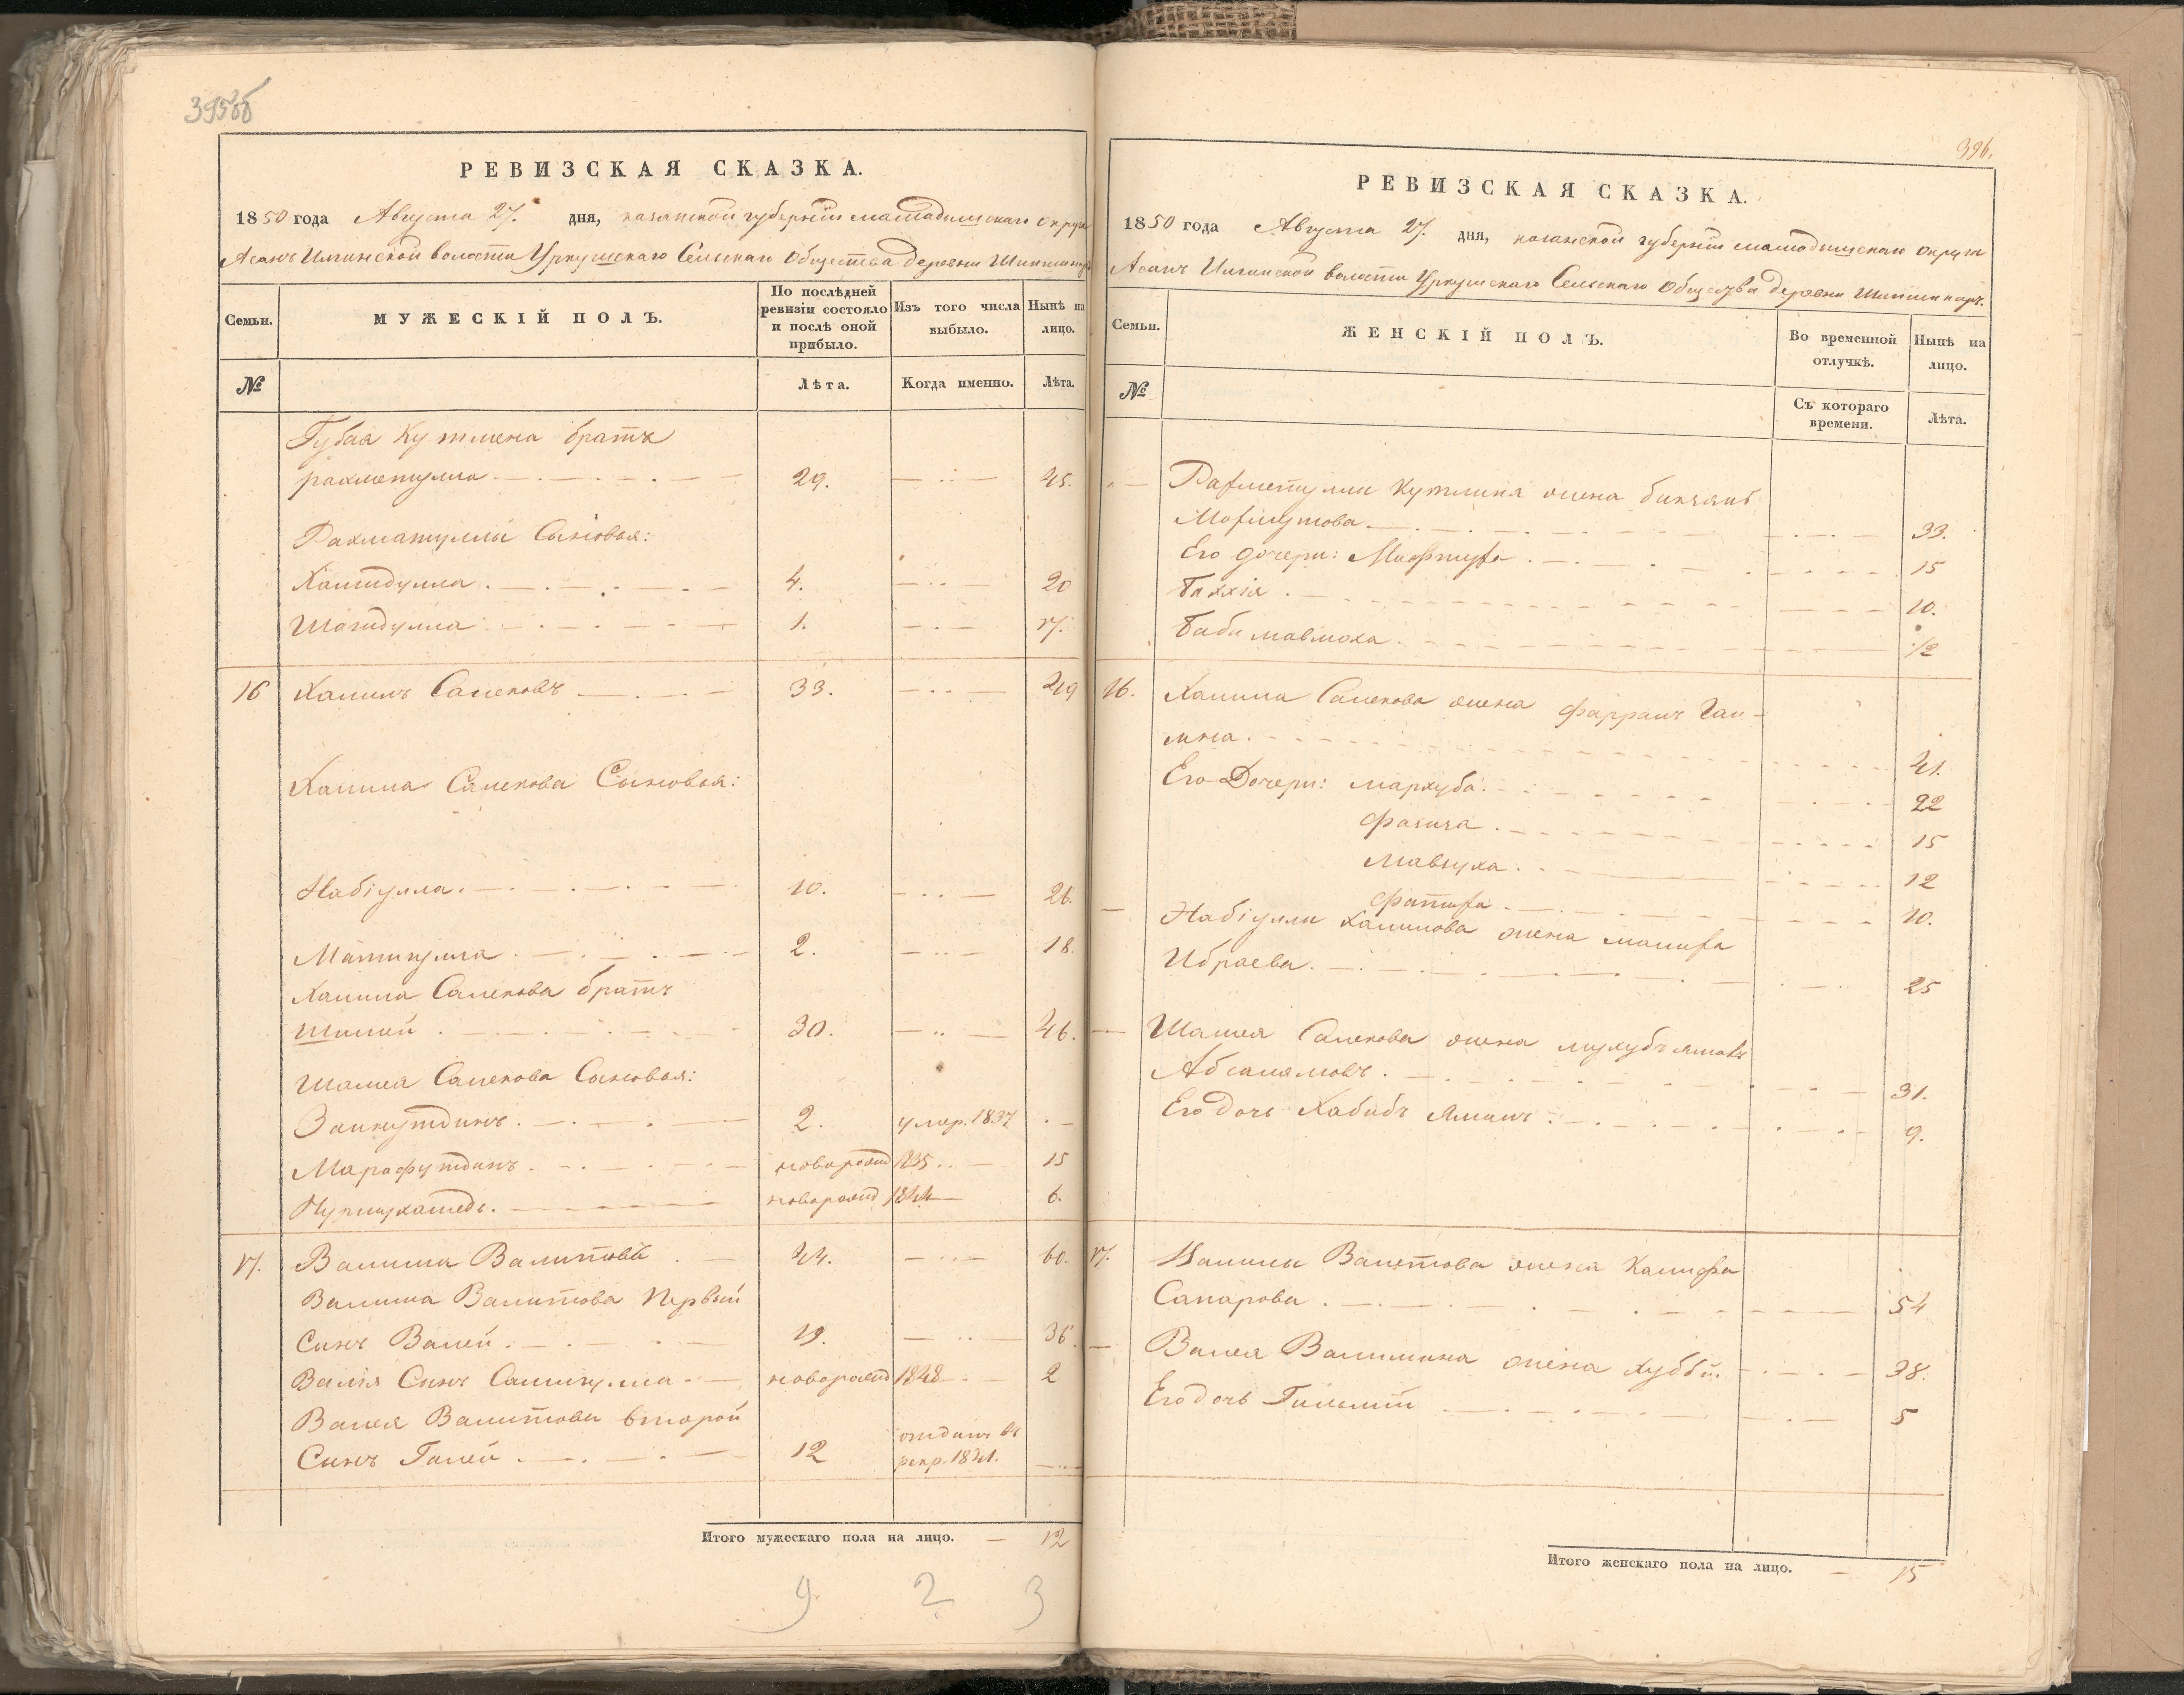 395об
РЕВИЗСКАЯ СКАЗКА.
1850 года Августа 27. дня, казанской губернiи мамадышскаго округа
Асанъ Илгинской волости Уркушскаго Сельскаго Общества деревни
Семьи.
МУЖЕСКІЙ ПОЛЪ.
По послѣдней ревизіи состояло и послѣ оной прибыло.
Изъ того числа выбыло.
Нынѣ на лицо.
№
Лѣта.
Когда именно.
Лѣта.
Губая Кутлина братъ
рахметулла 29. 45.
Рахматуллы Сыновья:
Хамидулла 4. 20
Шагидулла 1. 17.
16 Халилъ Салеховъ 33. 49
Халила Салехова Сыновья:
Набіулла 10. 26.
Матигулла 2. 18.
Халила Салехова братъ
Шалей 30. 46.
Шалея Салехова Сыновья:
Зайнутдинъ 2. умер. 1837
Марафутдинъ новорожд 1835 15
Нурмухаметъ новорожд 1844 6.
17. Валиша Валитовъ 44. 60.
Валиша Валитова первый
Сынъ Валей 19. 36
Валія Сынъ Самигулла новорожд 1848 2
Валея Валитова второй
Сынъ Галей 12 отданъ въ рекр. 1841.
Итого мужескаго пола на лицо. 12
9 2 3
396.
РЕВИЗСКАЯ СКАЗКА.
1850 года Августа 27. дня, казанской губернiи мамадышскаго округа
Асанъ Илгинской волости Уркушскаго Сельскаго Общества деревни
Семьи.
ЖЕНСКІЙ ПОЛЪ.
Во временной отлучкѣ.
Нынѣ на лицо.
№
Съ котораго времени.
Лѣта.
Рахметуллы Кутлина жена
Махмутова 33.
Его дочери: Махтуха 15
10.
1/2
16. Халила Салехова жена
41.
Его Дочери: Мархуба 22
Фагиза 15
Мавлуха 12
Фатиха 10.
Набіуллы Халилова жена малиха
Ибраева 25
Шалея Салехова жена
Абсалямовъ 31.
Его дочь Хабибъ Ямалъ 9.
17. Валиши Валетова жена Халифа
Сапарова 54
Валея Валишина жена 38.
Его дочь 5
Итого женскаго пола на лицо. 15